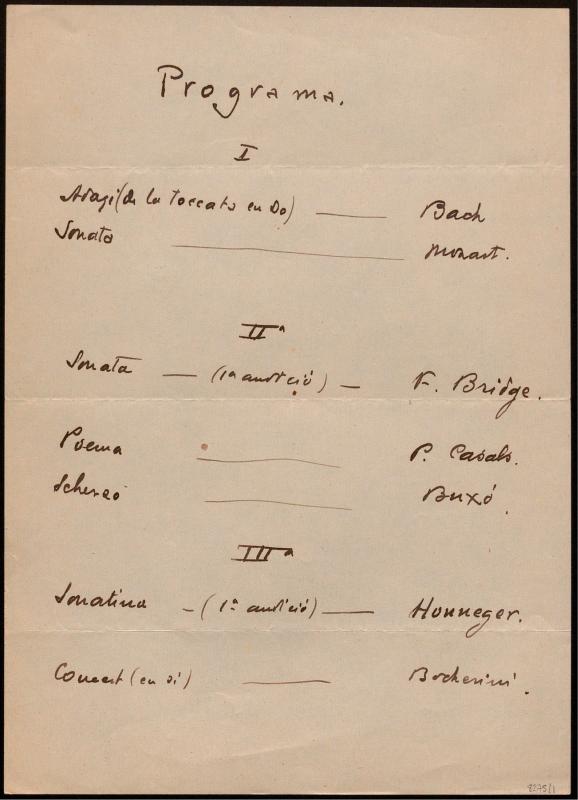 Programa.
I
Adagi (de la toccata en Do) — Bach
Sonata — Mozart.
IIª
Sonata — (1ª audició) — F. Bridge.
Poema — P. Casals.
Scherzo — Buxó.
IIIª
Sonatina - (1ª audició) — Honneger.
Concert (en si) — Bocherini.
8275/1